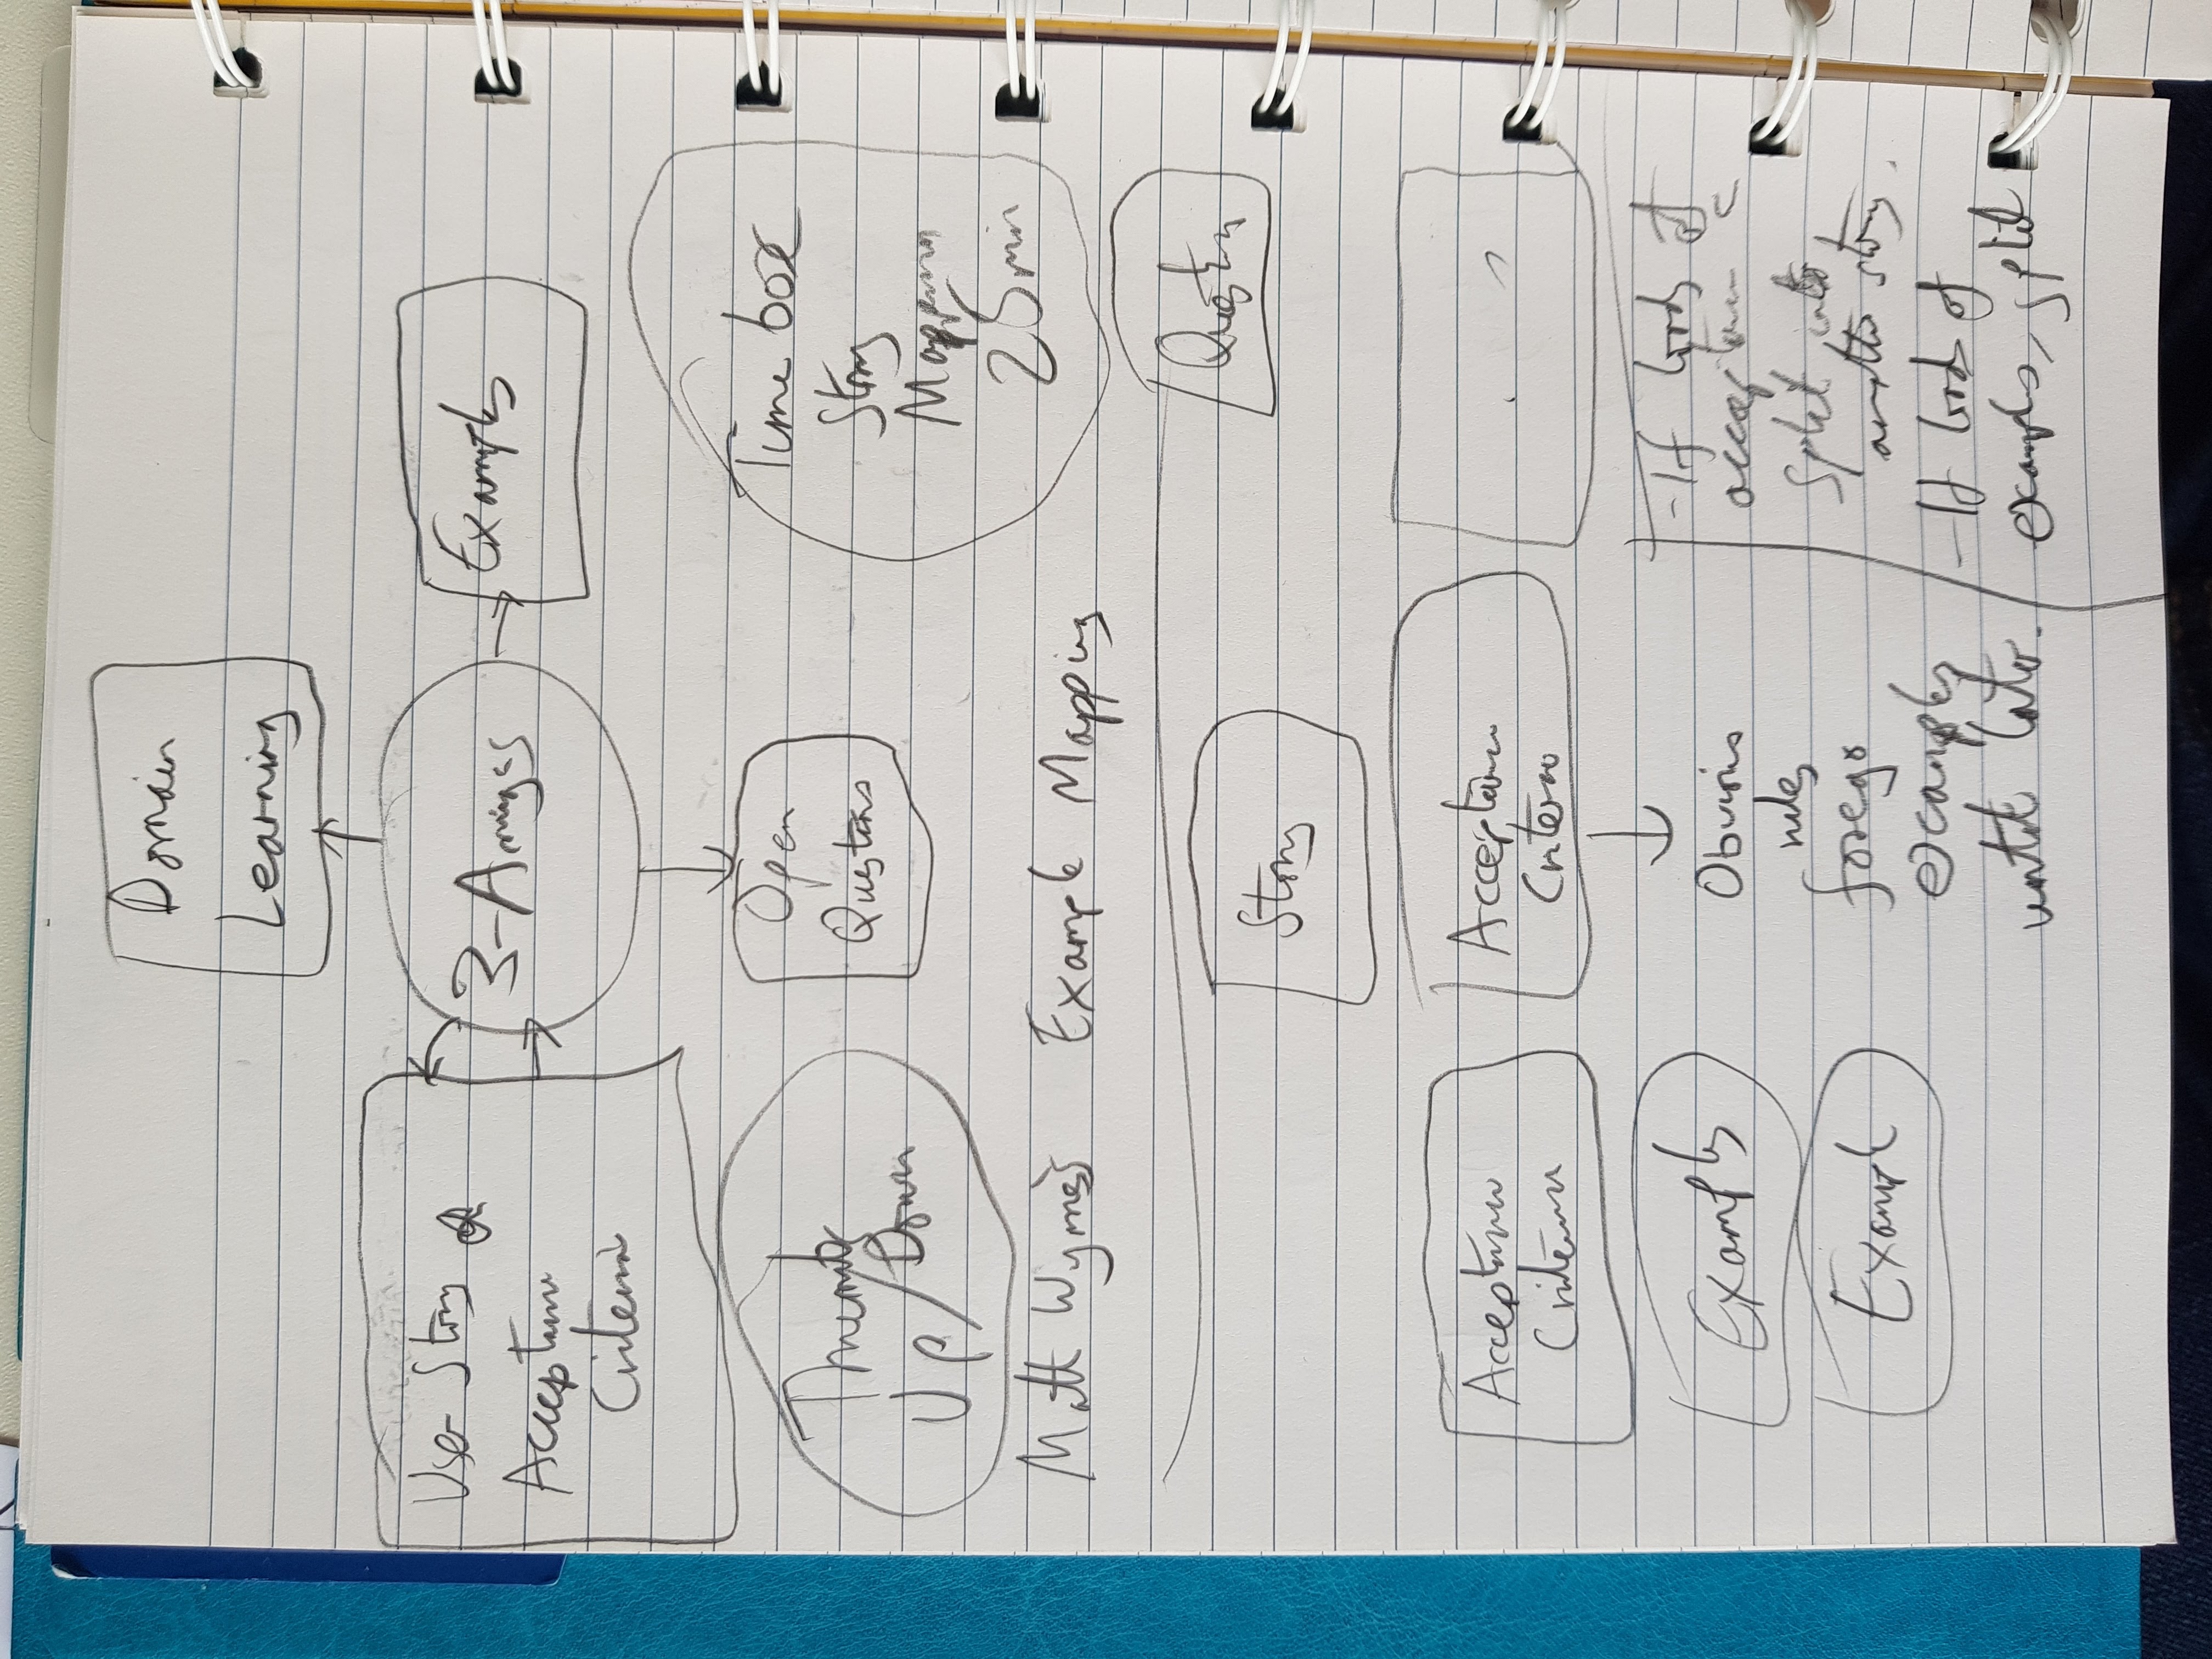 Domain
Learning
User Story &
Acceptance
Criteria
3-Amigos
Examples
Open
Questions
Thumbs
Up / Down
Time box
Story
Mapping
25min
Matt Wynne's Example Mapping
Question
Story
Acceptance
Criteria
Acceptance
Criteria
Examples
Example
Obvious
rules
forego
examples
until later.
- If loads of
acceptance c
split into
another story.
- If loads of
examples, split